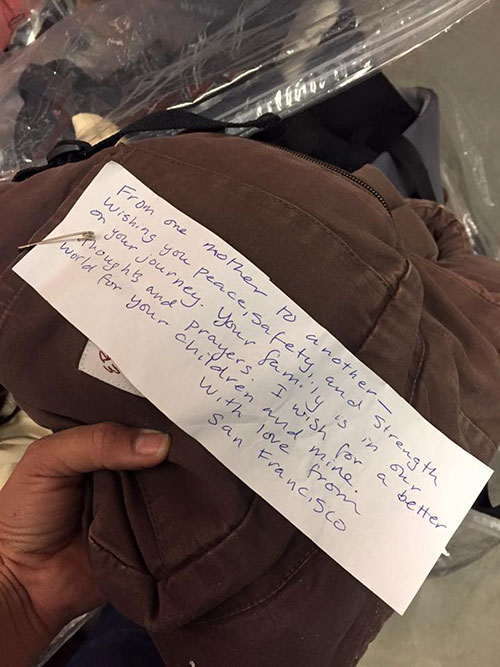 From one mother to another—
Wishing you Peace, Safety, and Strength
on your journey. Your family is in our
thoughts and prayers. I wish for a better
world for your children and mine.
With love from
San Francisco